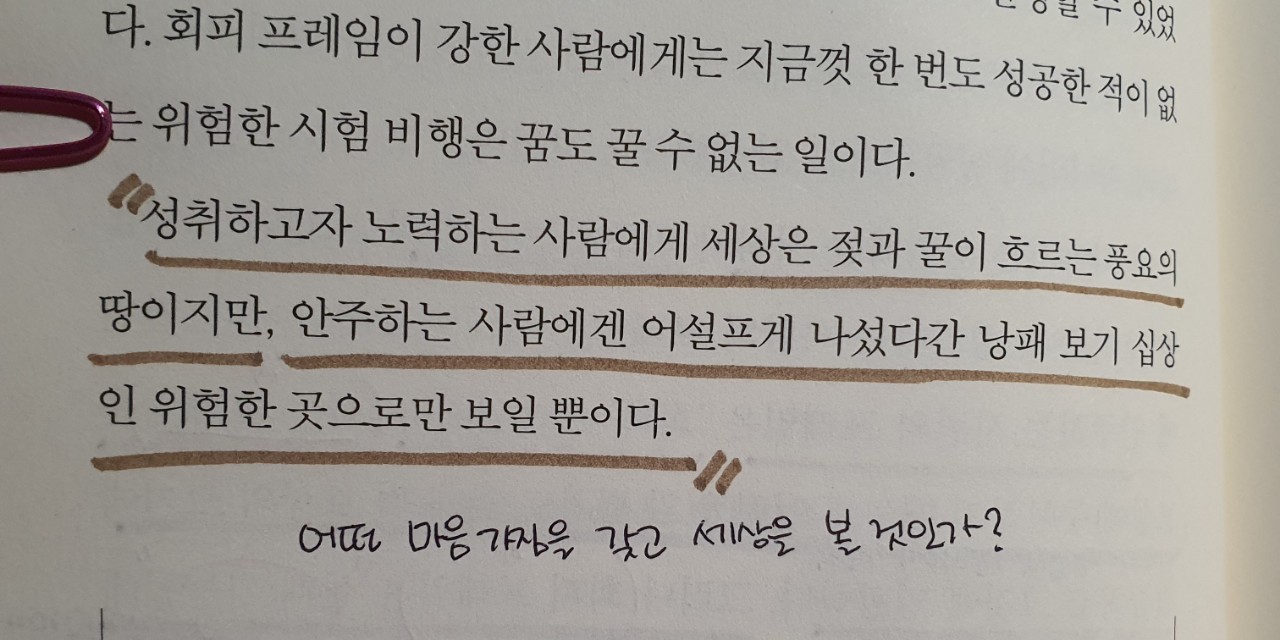 수 있었
다. 회피 프레임이 강한 사람에게는 지금껏 한 번도 성공한 적이 없
는 위험한 시험 비행은 꿈도 꿀 수 없는 일이다.
“성취하고자 노력하는 사람에게 세상은 젖과 꿀이 흐르는 풍요의
땅이지만, 안주하는 사람에겐 어설프게 나섰다간 낭패 보기 십상
인 위험한 곳으로만 보일 뿐이다.”
어떤 마음가짐을 갖고 세상을 볼 것인가?